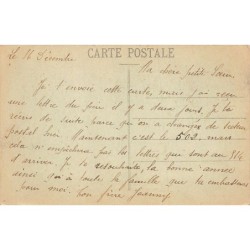 le 16 Décembre
CARTE POSTALE
Ma chère petite
Je t'envoie cette carte, mais j'ai reçu
une lettre du père il y a deux jours, Je la
parce que on a changé de secteur
postal Maintenant c'est le 502, mais
cela n'empêche pas les lettres qui sont au 314
d'arriver. Je te souhaite la bonne année
ainsi qu'à toute la famille que tu embrasseras
pour moi. Ton frère